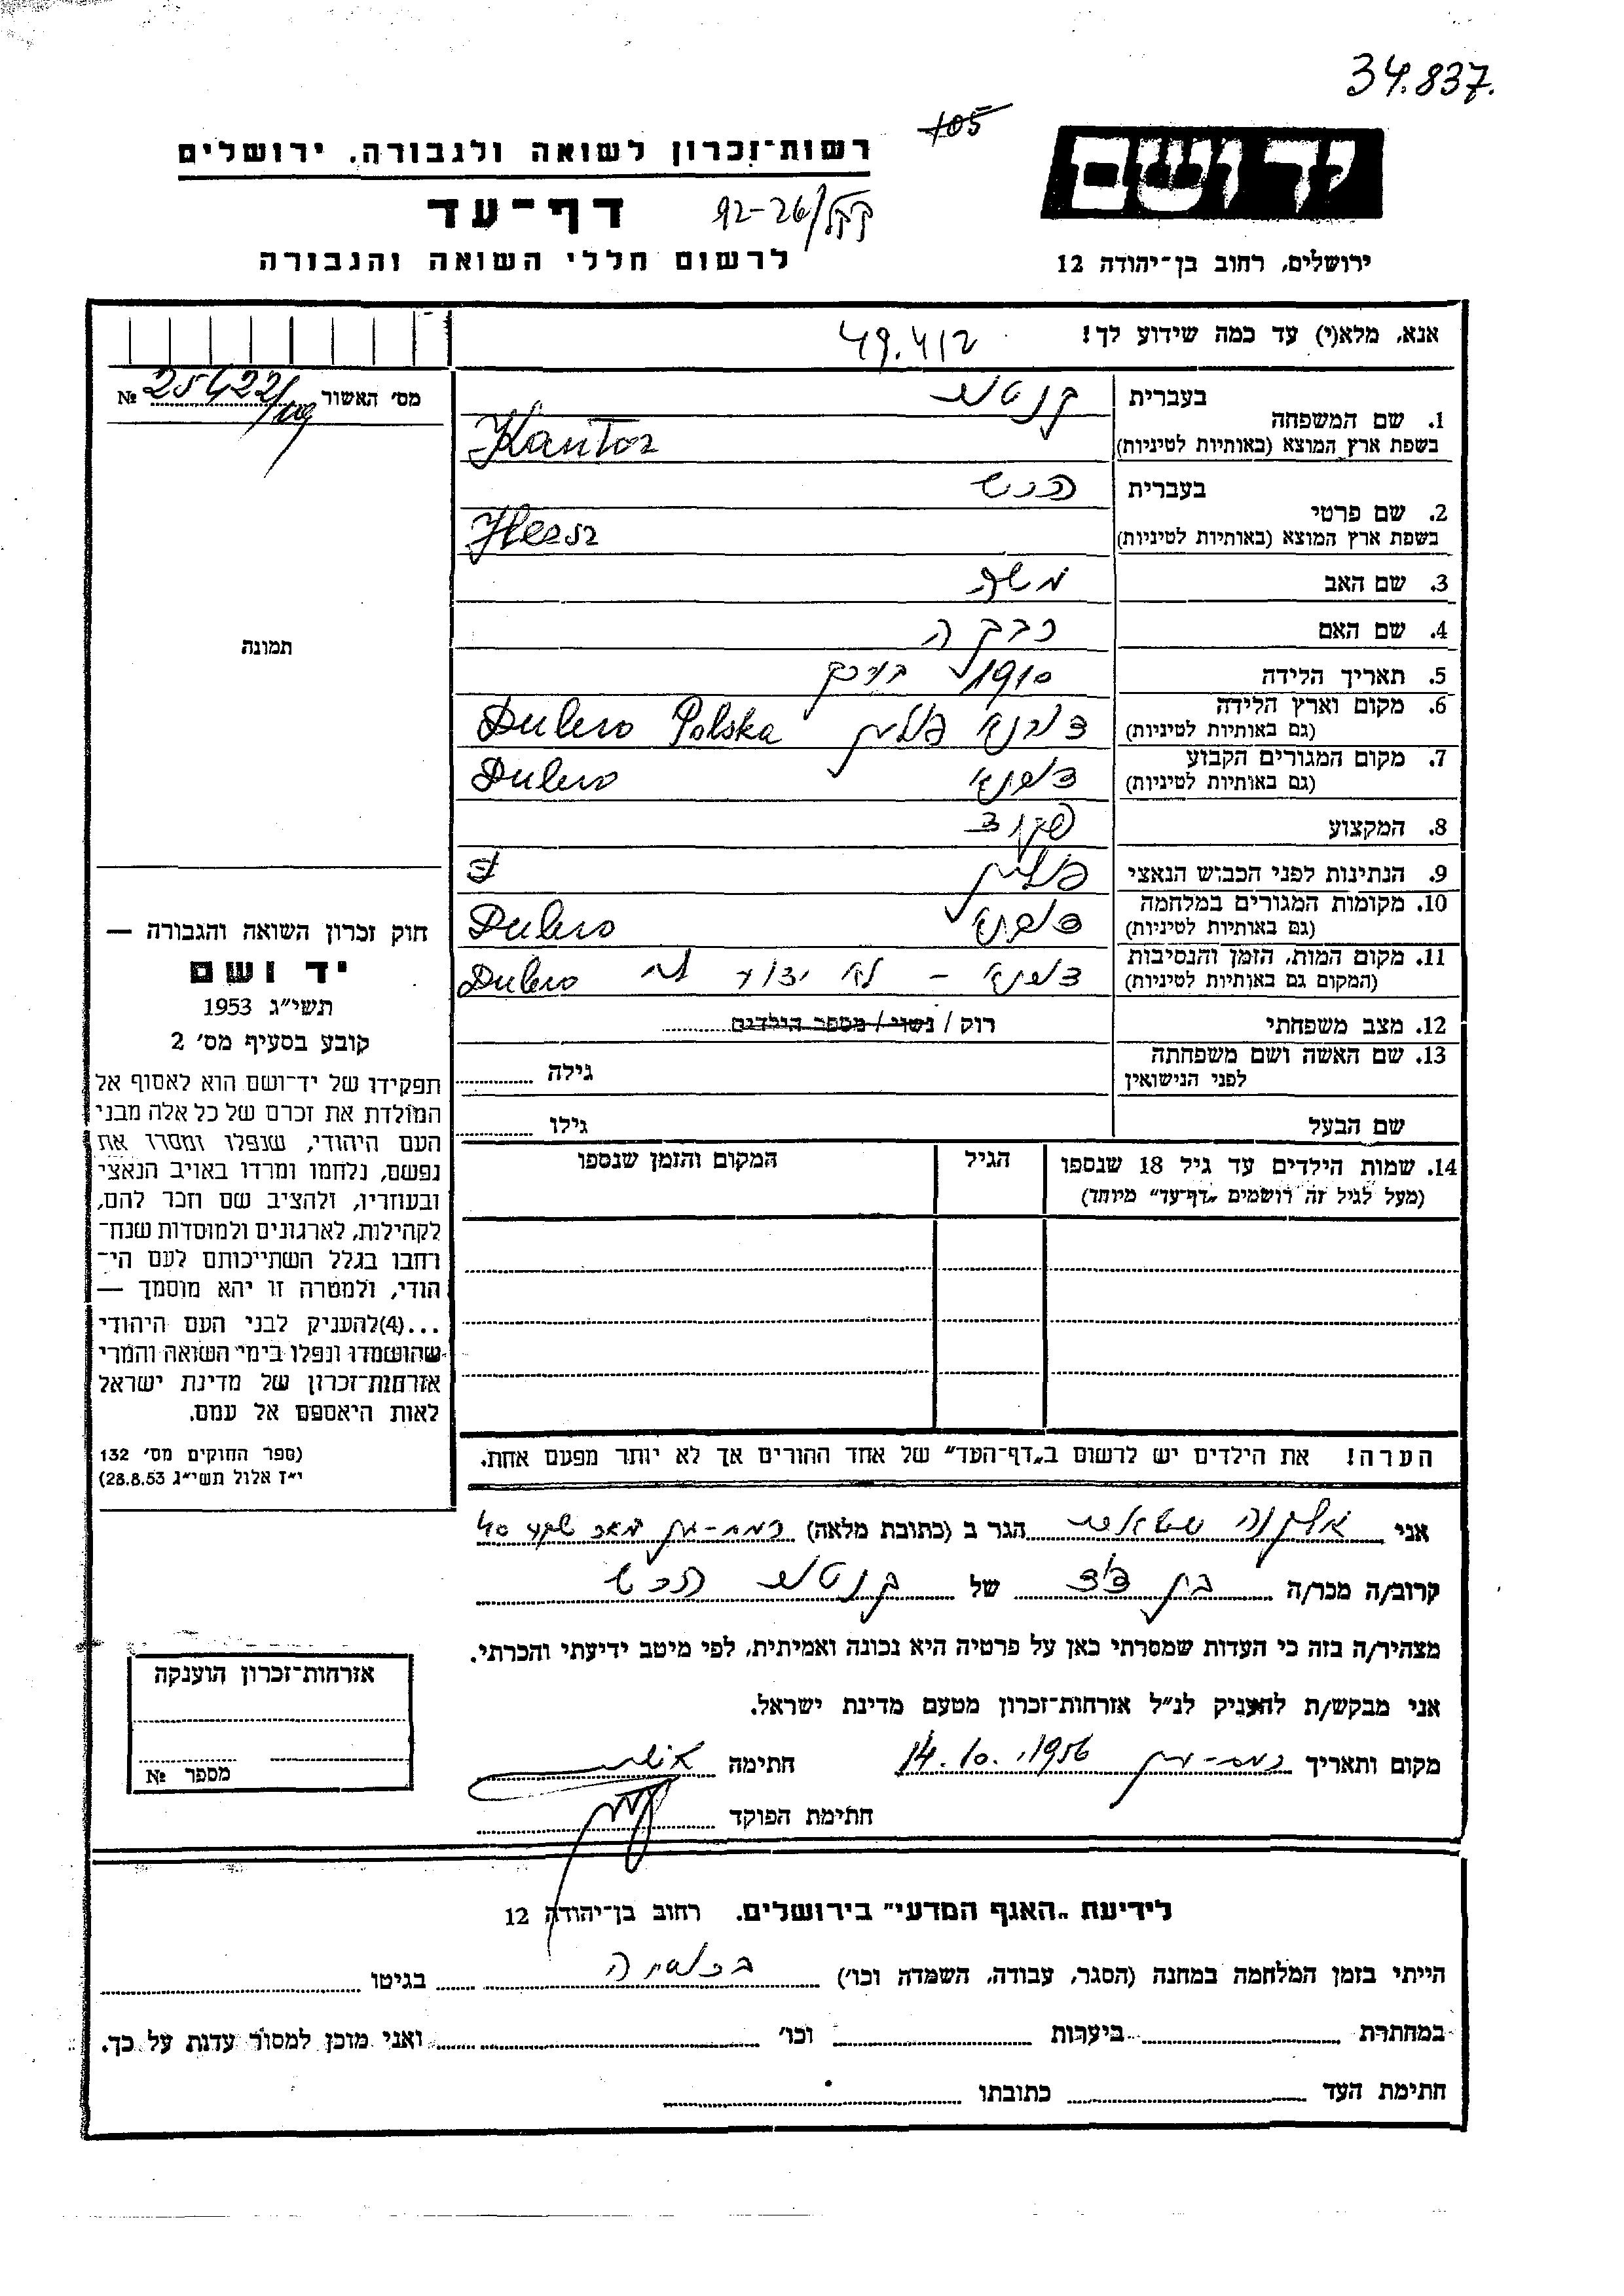 34.837.
105
רשות־זכרון לשואה ולגבורה. ירושלים
יד ושם
דף־עד
92-26/קקל
לרשום חללי השואה והגבורה
ירושלים, רחוב בן־יהודה 12
אנא, מלא(י) עד כמה שידוע לך!
49.412
מס׳ האשור № 25422/109
1. שם המשפחה
בעברית קנטור
בשפת ארץ המוצא (באותיות לטיניות) Kantor
2. שם פרטי
בעברית הרש
בשפת ארץ המוצא (באותיות לטיניות) Hersz
3. שם האב משה
4. שם האם רבקה
5. תאריך הלידה 1910
6. מקום וארץ הלידה
(גם באותיות לטיניות) דובנא פולין Dubno Polska
7. מקום המגורים הקבוע
(גם באותיות לטיניות) דובנא Dubno
8. המקצוע פקיד
9. הנתינות לפני הכבוש הנאצי פולין
10. מקומות המגורים במלחמה
(גם באותיות לטיניות) דובנא Dubno
11. מקום המות, הזמן והנסיבות
(המקום גם באותיות לטיניות) דובנא – לא ידוע Dubno
12. מצב משפחתי רוק / נשוי / מספר הילדים
13. שם האשה ושם משפחתה
לפני הנישואין
גילה
שם הבעל
גילו
14. שמות הילדים עד גיל 18 שנספו
(מעל לגיל זה רושמים „דף־עד" מיוחד)
הגיל
המקום והזמן שנספו
הערה! את הילדים יש לרשום ב„דף־העד" של אחד ההורים אך לא יותר מפעם אחת.
תמונה
חוק זכרון השואה והגבורה —
יד ושם
תשי״ג 1953
קובע בסעיף מס׳ 2
תפקידו של יד־ושם הוא לאסוף אל
המולדת את זכרם של כל אלה מבני
העם היהודי, שנפלו ומסרו את
נפשם, נלחמו ומרדו באויב הנאצי
ובעוזריו, ולהציב שם וזכר להם,
לקהילות, לארגונים ולמוסדות שנח־
רחבו בגלל השתייכותם לעם הי־
הודי, ולמטרה זו יהא מוסמך —
...(4)להעניק לבני העם היהודי
שהושמדו ונפלו בימי השואה והמרי
אזרחות־זכרון של מדינת ישראל
לאות היאספם אל עמם.
(ספר החוקים מס׳ 132
י״ז אלול תשי״ג 28.8.53)
אני הגר ב (כתובת מלאה) רמת-גן 40
קרוב/ה מכר/ה בן דוד של קנטור הרש
מצהיר/ה בזה כי העדות שמסרתי כאן על פרטיה היא נכונה ואמיתית, לפי מיטב ידיעתי והכרתי.
אני מבקש/ת להעניק לנ״ל אזרחות־זכרון מטעם מדינת ישראל.
מקום ותאריך רמת-גן 14.10.1956 חתימה
חתימת הפוקד
אזרחות־זכרון הוענקה
מספר №
לידיעת „האגף המדעי" בירושלים. רחוב בן־יהודה 12
הייתי בזמן המלחמה במחנה (הסגר, עבודה, השמדה וכו׳) ברוסיה בגיטו
במחתרת ביערות וכו׳ ואני מוכן למסור עדות על כך.
חתימת העד כתובתו